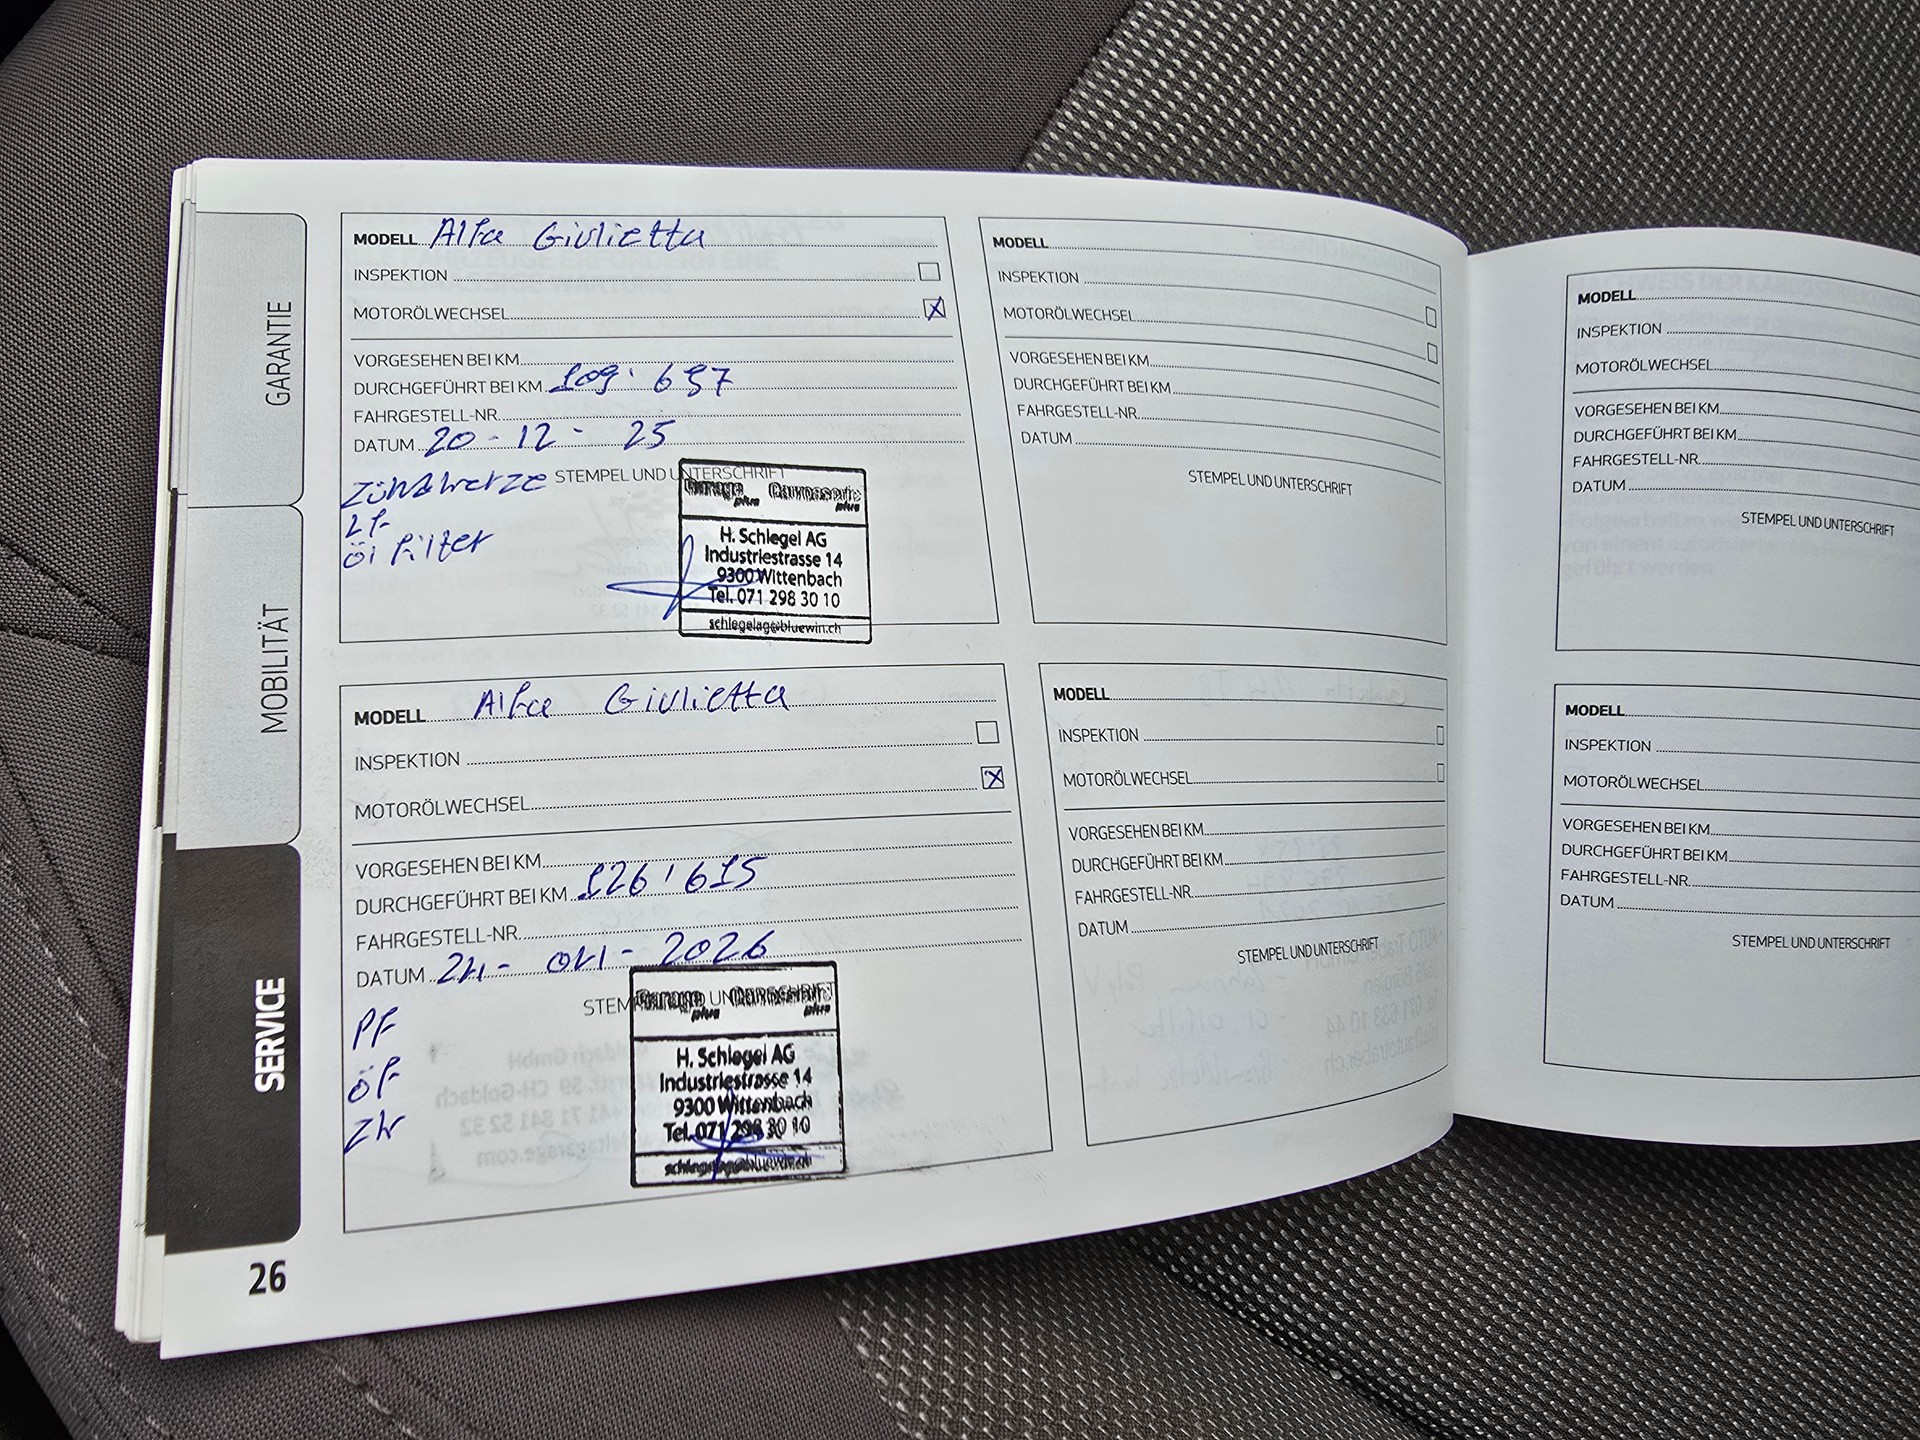 GARANTIE
MOBILITÄT
SERVICE
26
MODELL Alfa Giulietta
INSPEKTION
MOTORÖLWECHSEL X
VORGESEHEN BEI KM
DURCHGEFÜHRT BEI KM 109'697
FAHRGESTELL-NR.
DATUM 20-12-25
STEMPEL UND UNTERSCHRIFT
Zündkerze
LF
Öl Filter
Garage plus Carrosserie plus
H. Schlegel AG
Industriestrasse 14
9300 Wittenbach
Tel. 071 298 30 10
schlegelag@bluewin.ch
MODELL Alfa Giulietta
INSPEKTION
MOTORÖLWECHSEL X
VORGESEHEN BEI KM
DURCHGEFÜHRT BEI KM 126'615
FAHRGESTELL-NR.
DATUM 24-04-2026
STEMPEL UND UNTERSCHRIFT
PF
ÖF
ZK
Garage plus Carrosserie plus
H. Schlegel AG
Industriestrasse 14
9300 Wittenbach
Tel. 071 298 30 10
schlegelag@bluewin.ch
MODELL
INSPEKTION
MOTORÖLWECHSEL
VORGESEHEN BEI KM
DURCHGEFÜHRT BEI KM
FAHRGESTELL-NR.
DATUM
STEMPEL UND UNTERSCHRIFT
MODELL
INSPEKTION
MOTORÖLWECHSEL
VORGESEHEN BEI KM
DURCHGEFÜHRT BEI KM
FAHRGESTELL-NR.
DATUM
STEMPEL UND UNTERSCHRIFT
MODELL
INSPEKTION
MOTORÖLWECHSEL
VORGESEHEN BEI KM
DURCHGEFÜHRT BEI KM
FAHRGESTELL-NR.
DATUM
STEMPEL UND UNTERSCHRIFT
MODELL
INSPEKTION
MOTORÖLWECHSEL
VORGESEHEN BEI KM
DURCHGEFÜHRT BEI KM
FAHRGESTELL-NR.
DATUM
STEMPEL UND UNTERSCHRIFT